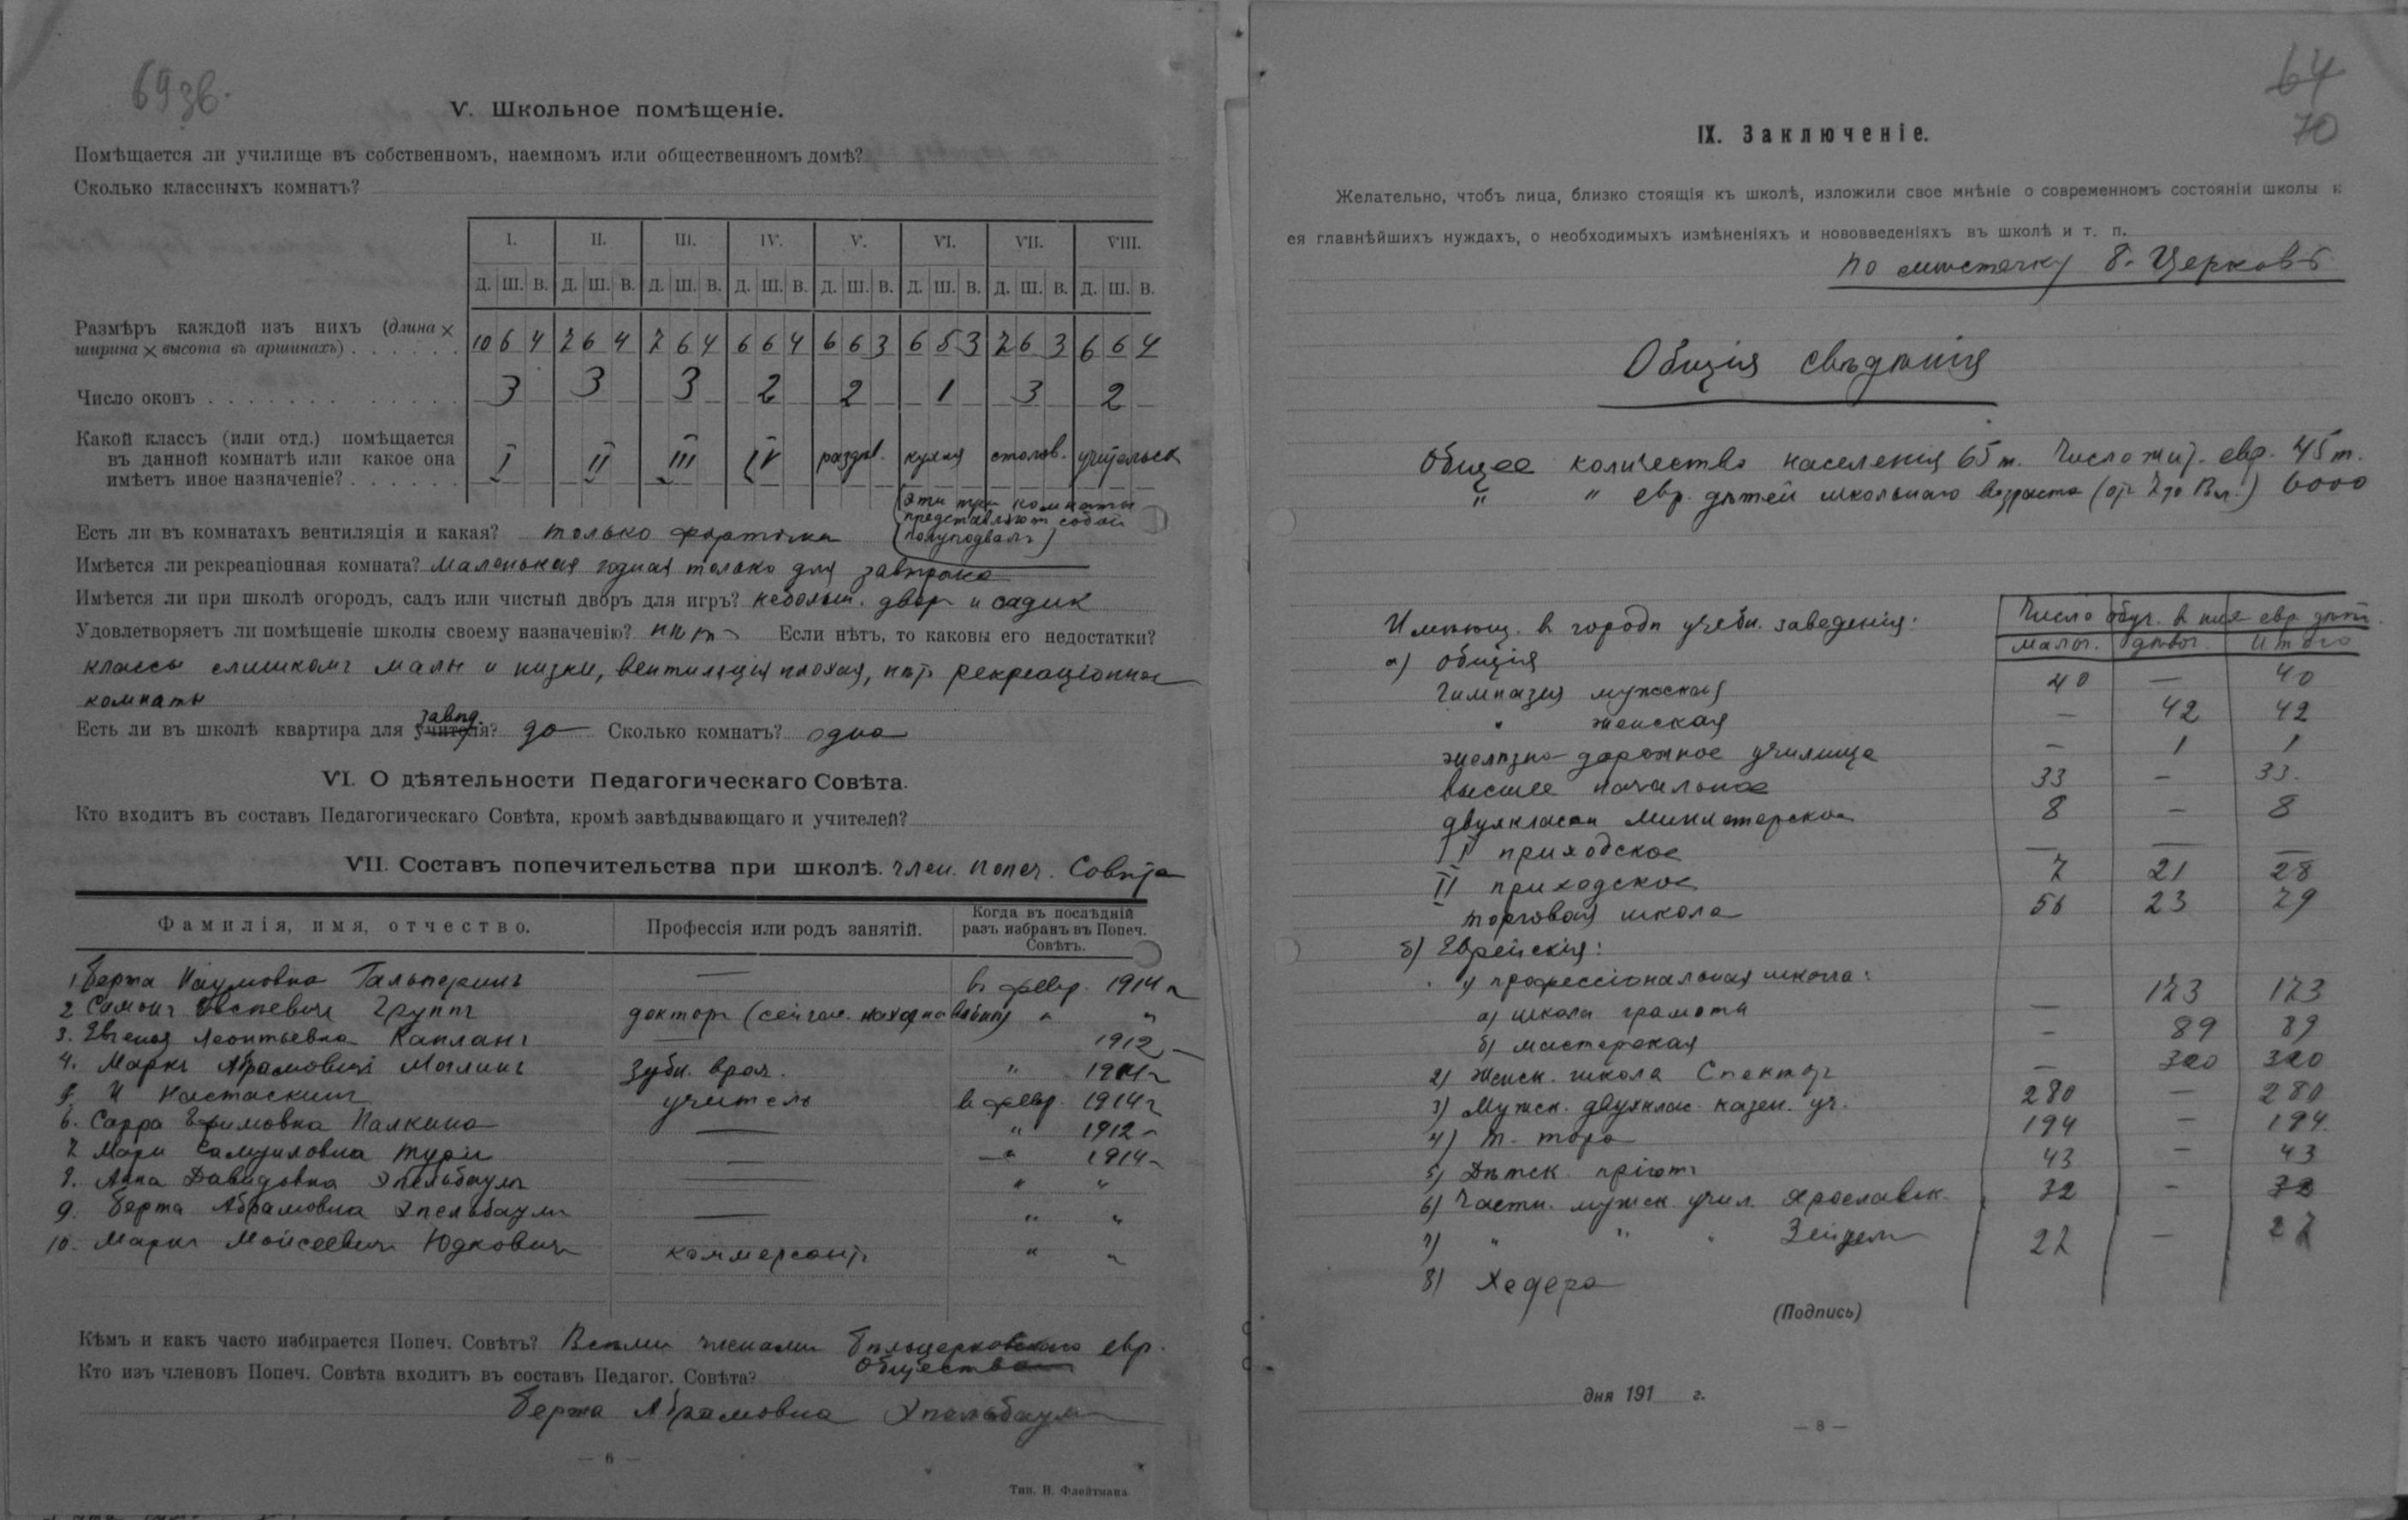 69 зв.
V. Школьное помѣщеніе.
Помѣщается ли училище въ собственномъ, наемномъ или общественномъ домѣ?
Сколько классныхъ комнатъ?
I. II. III. IV. V. VI. VII. VIII.
Д. Ш. В. Д. Ш. В. Д. Ш. В. Д. Ш. В. Д. Ш. В. Д. Ш. В. Д. Ш. В. Д. Ш. В.
Размѣръ каждой изъ нихъ (длина ×
ширина × высота въ аршинахъ) . . . . . . 10 6 4 7 6 4 7 6 4 6 6 4 6 6 3 6 5 3 7 6 3 6 6 4
Число оконъ . . . . . . . 3 3 3 2 2 1 3 2
Какой классъ (или отд.) помѣщается
въ данной комнатѣ или какое она
имѣетъ иное назначеніе? . . . . . . I II III IV раздѣв. кухня столов. учительск
(эти три комнаты
представляют собой
полуподвалъ)
Есть ли въ комнатахъ вентиляція и какая? только форточки
Имѣется ли рекреаціонная комната? маленькая годная только для завтрака
Имѣется ли при школѣ огородъ, садъ или чистый дворъ для игръ? небольш. двор и садик
Удовлетворяетъ ли помѣщеніе школы своему назначенію? нѣтъ Если нѣтъ, то каковы его недостатки?
классы слишкомъ малы и низки, вентиляція плохая, нѣт рекреаціонной
комнаты
завѣд.
Есть ли въ школѣ квартира для учителя? да Сколько комнатъ? одна
VI. О дѣятельности Педагогическаго Совѣта.
Кто входитъ въ составъ Педагогическаго Совѣта, кромѣ завѣдывающаго и учителей?
VII. Составъ попечительства при школѣ. член. попеч. Совѣта
Фамилія, имя, отчество. Профессія или родъ занятій. Когда въ послѣдній
разъ избранъ въ Попеч.
Совѣтъ.
1 Берта Наумовна Гальперинъ — в февр. 1914 г
2 Самоил Группъ доктор (сейчас. " "
3. Евгенія Леонтьевна Капланъ — 1912
4. Маркъ Абрамовичъ Маглинъ Зубн. врач. "
5. И Настаскинъ учитель в февр. 1914 г
6. Сарра Ефимовна Палкина — " 1912
7. Мари Самуиловна — " 1914
8. Анна Давидовна Эпельбаумъ — " "
9. Берта Абрамовна Эпельбаумъ — " "
10. Маркъ Мойсеевичъ Юдковичъ коммерсантъ " "
Кѣмъ и какъ часто избирается Попеч. Совѣтъ? Всѣми членами бѣлоцерковского евр.
общества
Кто изъ членовъ Попеч. Совѣта входитъ въ составъ Педагог. Совѣта?
Берта Абрамовна Эпельбаумъ
— 6 —
Тип. Н. Флейтмана
64
70
IX. Заключеніе.
Желательно, чтобъ лица, близко стоящія къ школѣ, изложили свое мнѣніе о современномъ состояніи школы и
ея главнѣйшихъ нуждахъ, о необходимыхъ измѣненіяхъ и нововведеніяхъ въ школѣ и т. п.
по мѣстечку Б. Церковь
Общія свѣдѣнія
Общее количество населенія 65 т. Число жит. евр. 45 т.
" " евр. дѣтей школьнаго возраста (от 7 до 6000
Имѣющ. в городѣ учебн. заведенія: Число обуч. в них евр. дѣт.
а) общія малч. дѣвоч. Итого
Гимназія мужская 40 — 40
" женская — 42 42
желѣзно-дорожное училище — 1 1
высшее начальное 33 — 33.
двухкласн Министерское 8 — 8
I приходское — — —
II приходское 7 21 28
торговая школа 56 23 79
б) Еврейскія:
1) профессіональная школа:
а) школа грамоты — 123 123
б) мастерская — 89 89
2) Женск. школа Спектор — 320 320
3) Мужск. двухклас. казен. уч. 280 — 280
4) Т. тора 194 — 194.
5) Дѣтск. пріютъ 43 — 43
6) Частн. мужск. учил. Ярославск. 32 — 32
7) " " " Зейдель 27 — 27
8) Хедера
(Подпись)
дня 191 г.
— 8 —